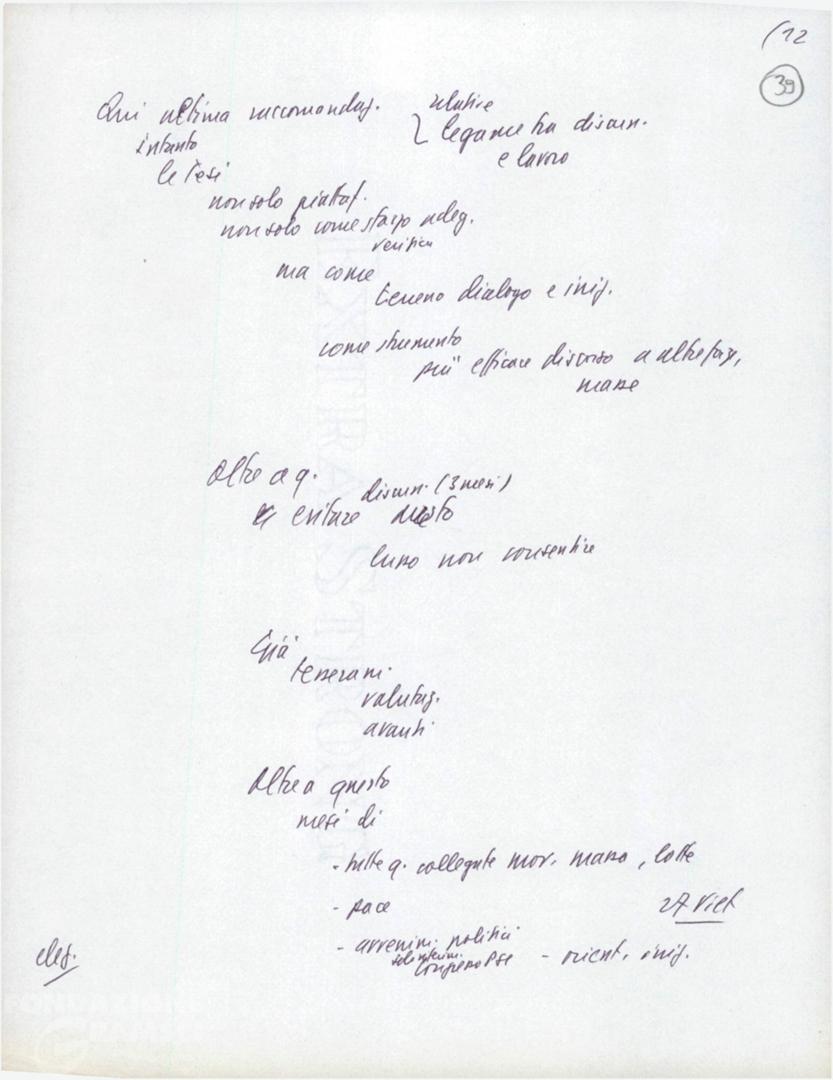 (12
39
Qui ultima raccomandaz. relative
intanto legame tra discuss.
e lavoro
le Tesi
non solo piattaf.
non solo come sforzo adeg.
verifica
ma come
terreno dialogo e iniz.
come strumento
più efficace discorso a altre forze,
masse
Oltre a q.
discuss. (3 mesi)
evitare questo
lusso non consentire
Già
tesseram.
valutaz.
avanti
Oltre a questo
mesi di
- tutte q. collegate mov. massa, lotte
- pace 27 Viet
- avvenim. politici
Congresso PSI - orient. iniz.
elez.
EXTRA STRONG
FONDAZIONE
GRAMSCI